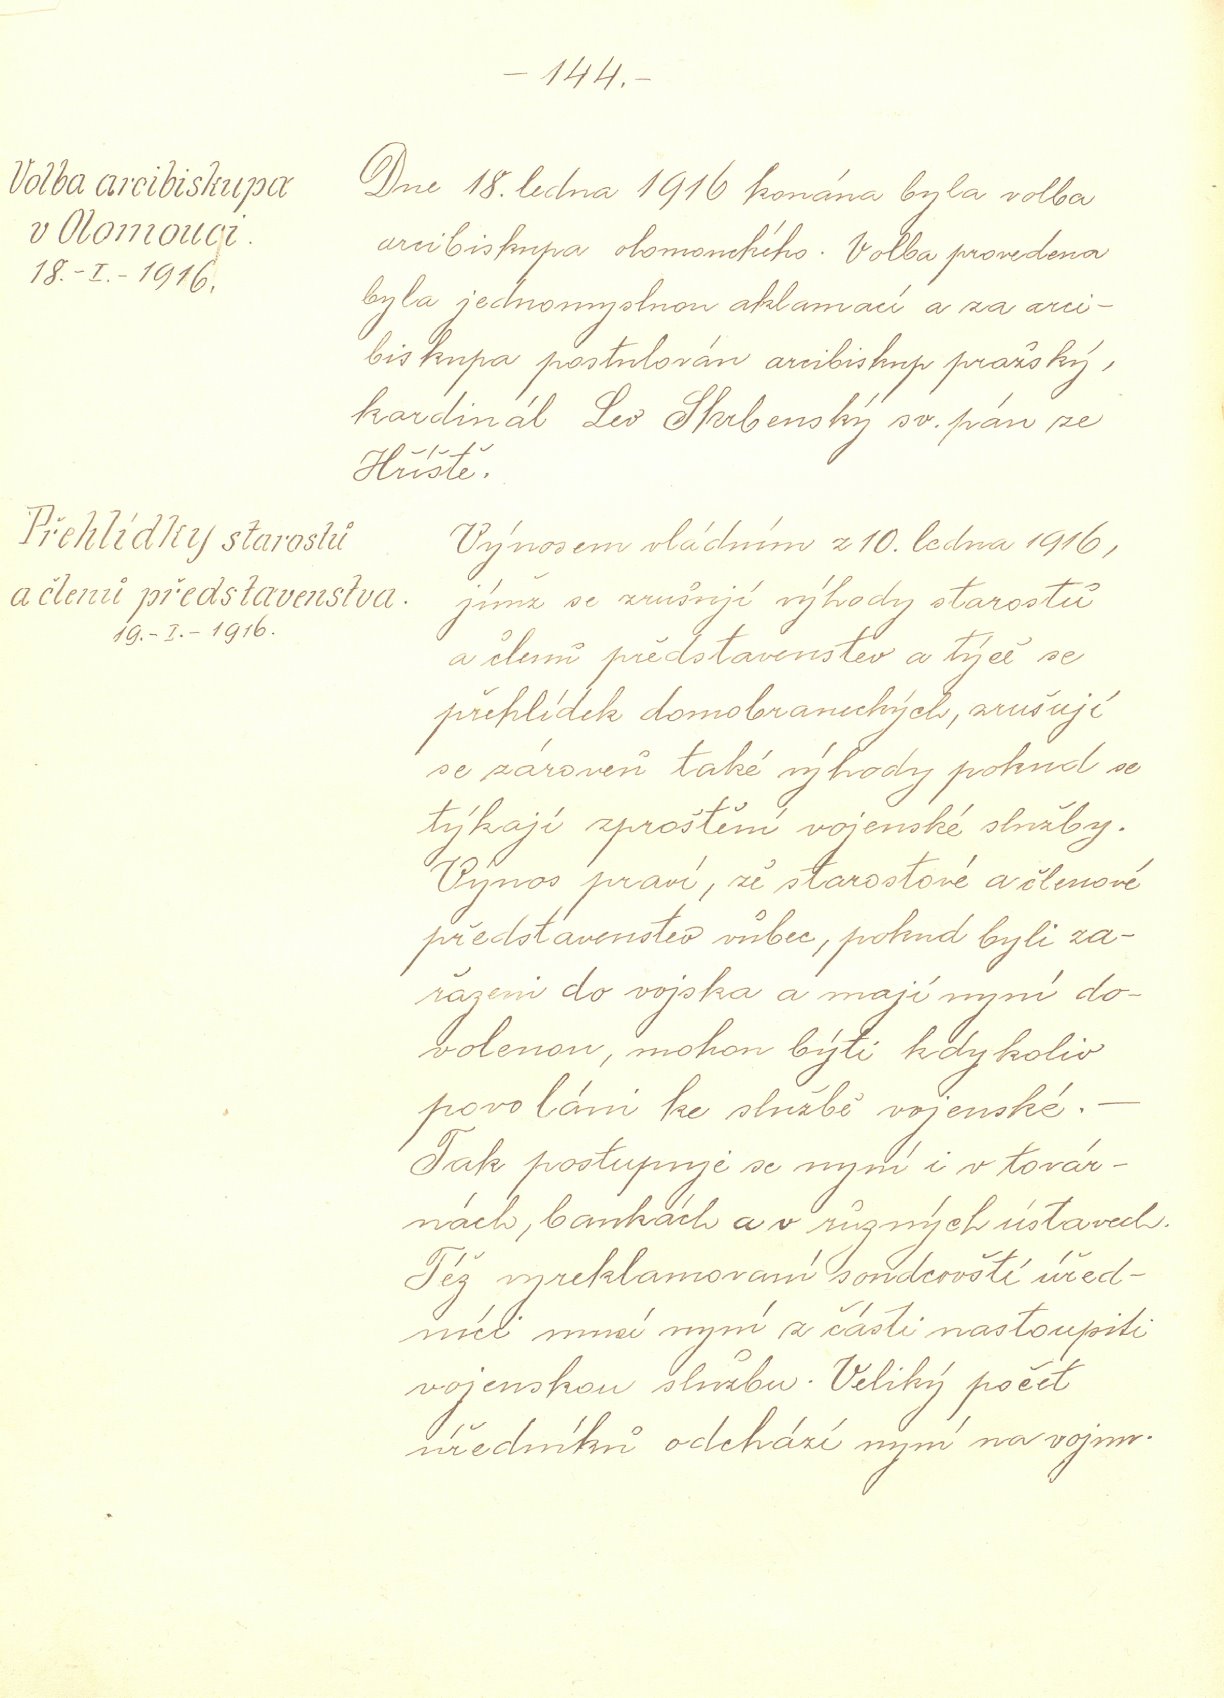 – 144. –
Volba arcibiskupa
v Olomouci.
18.-I.-1916.
Dne 18. ledna 1916 konána byla volba
arcibiskupa olomouckého. Volba provedena
byla jednomyslnou aklamací a za arci-
biskupa postulován arcibiskup pražský,
kardinál Lev Skrbenský sv. pán ze
Hříště.
Přehlídky starostů
a členů představenstva.
19.-I.-1916.
Výnosem vládním z 10. ledna 1916,
jímž se zrušují výhody starostů
a členů představenstev a týče se
přehlídek domobraneckých, zrušují
se zároveň také výhody pokud se
týkají zproštění vojenské služby.
Výnos praví, že starostové a členové
představenstev vůbec, pokud byli za-
řazeni do vojska a mají nyní do-
volenou, mohou býti kdykoliv
povoláni ke službě vojenské. —
Tak postupuje se nyní i v továr-
nách, bankách a v různých ústavech.
Též vyreklamovaní soudcovští úřed-
níci musí nyní z části nastoupiti
vojenskou službu. Veliký počet
úředníků odchází nyní na vojnu.